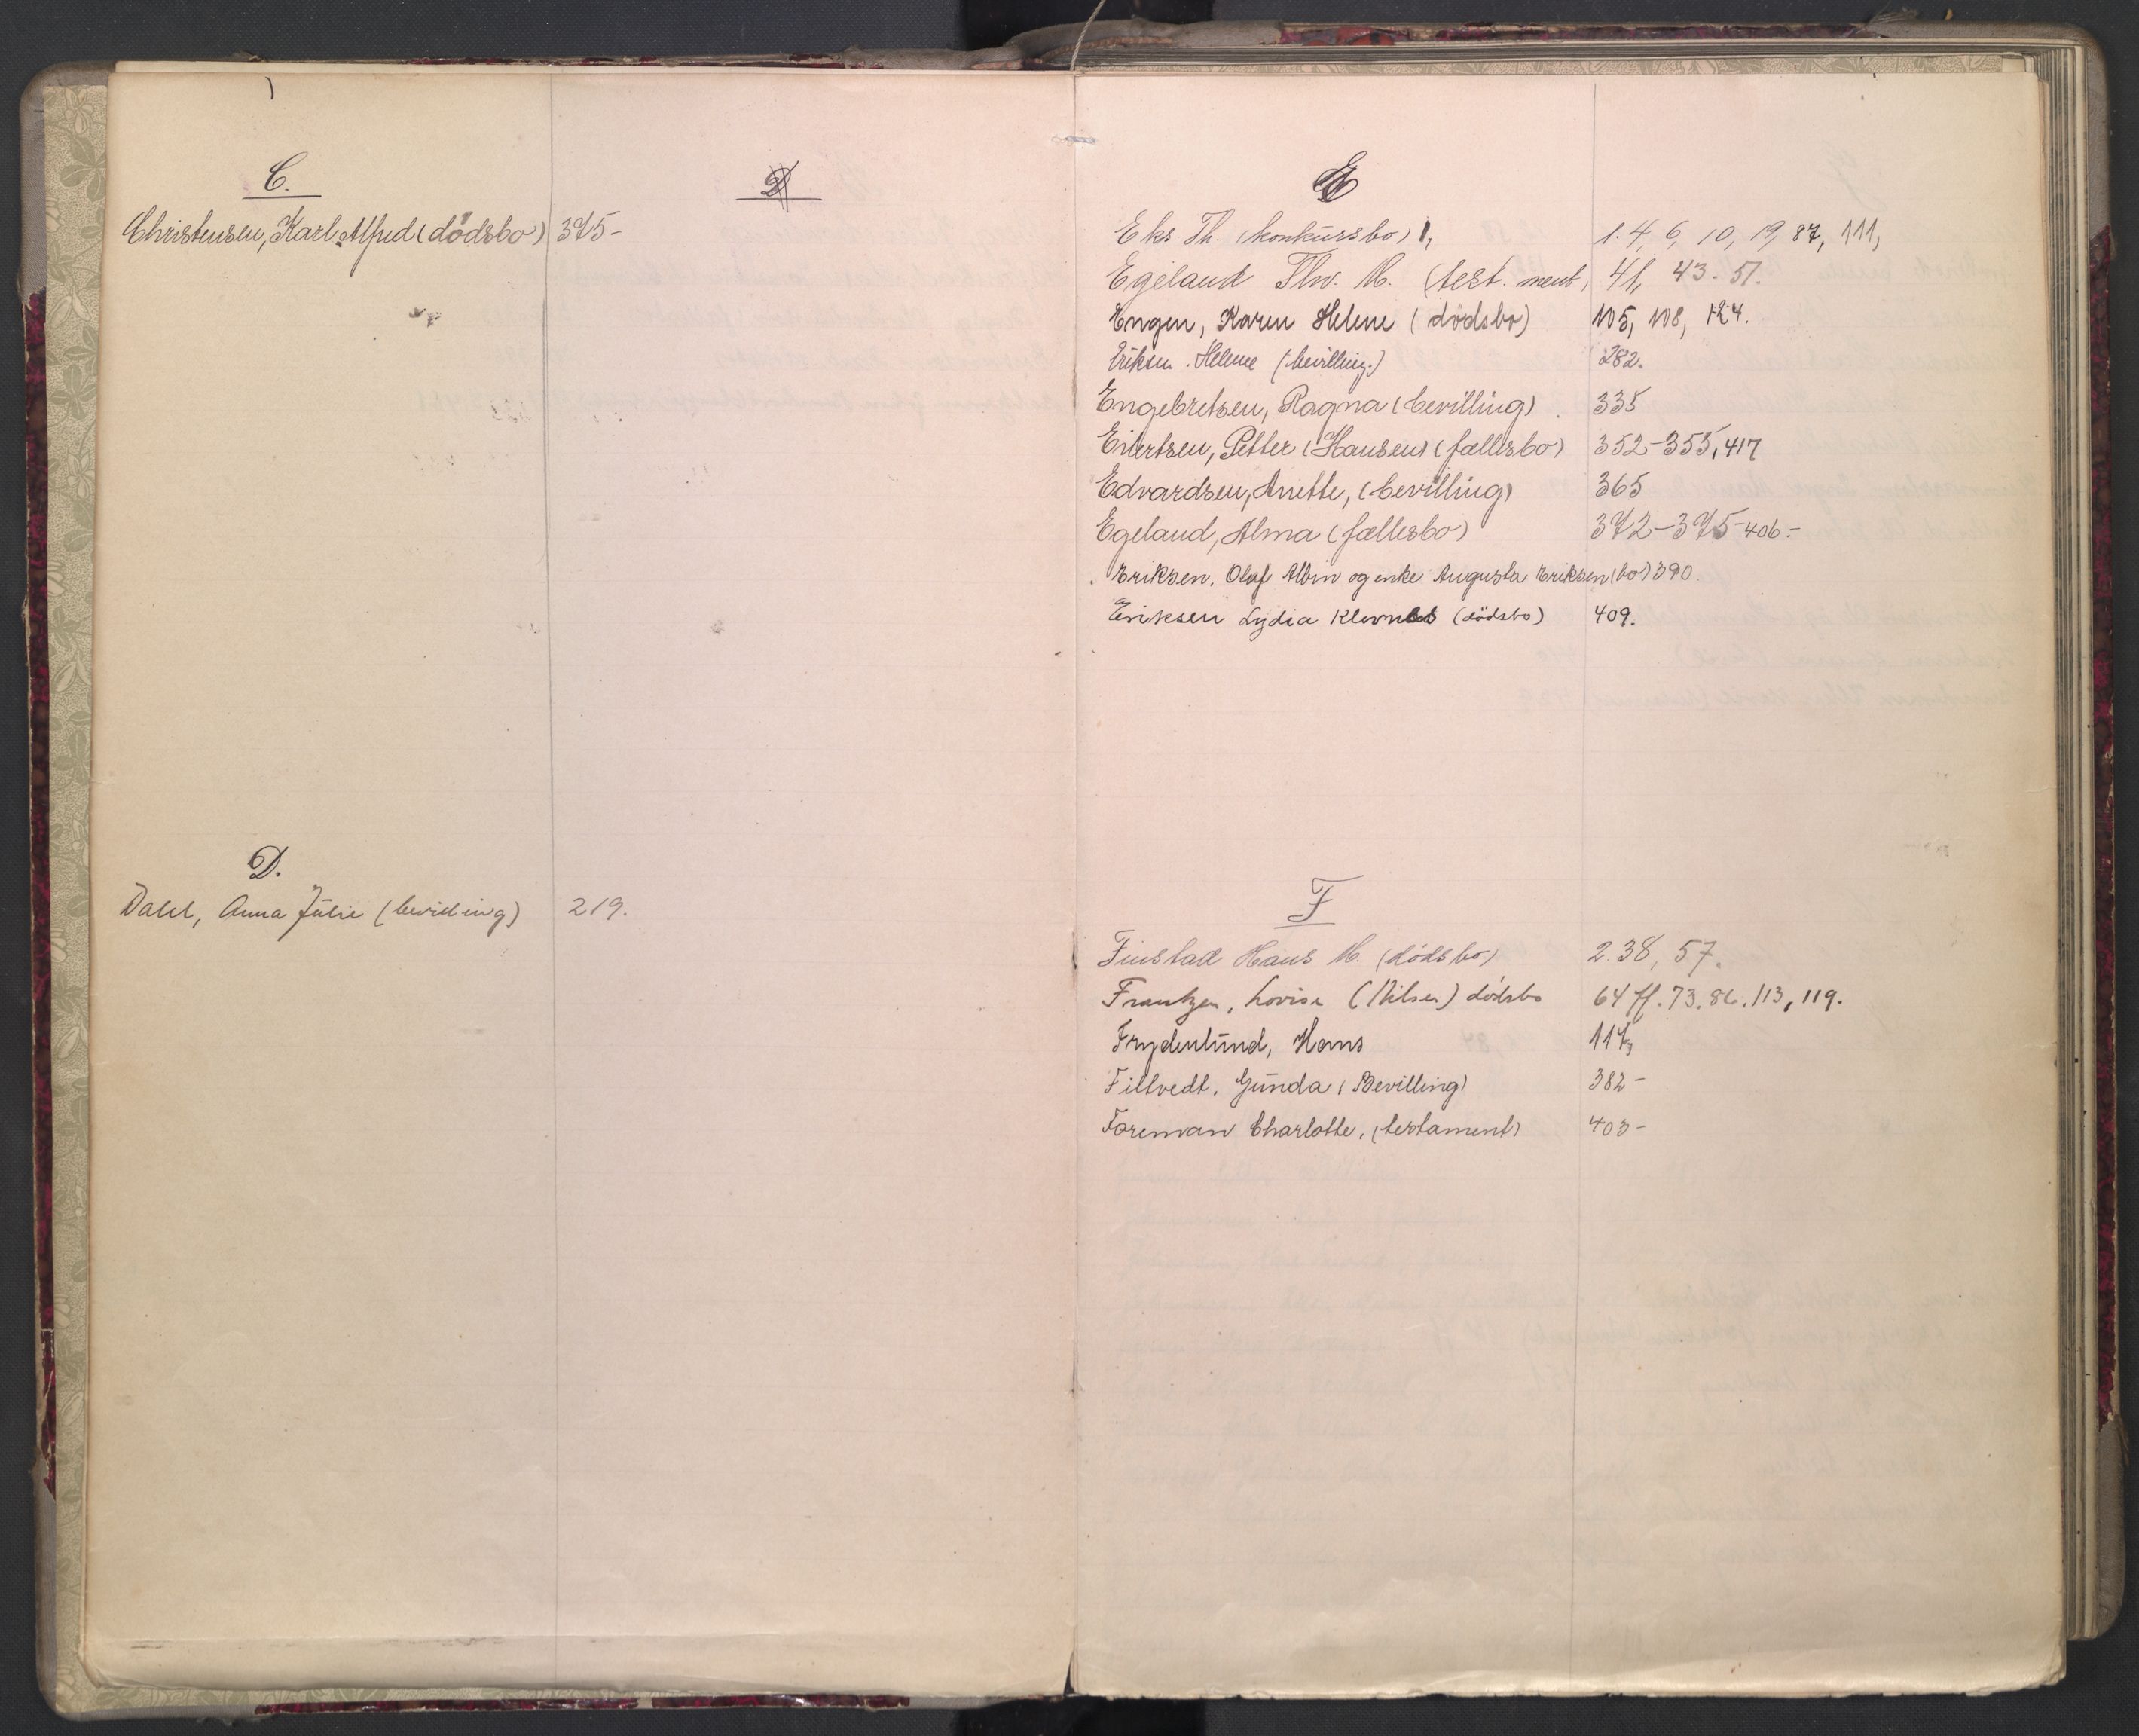 C.
Christensen, Karl Alfred (dödsbo) 375-
D.
Dahl, Anna Julie (bevilling) 219.
D
E
Eks Th. (konkursbo) 1, 1. 4, 6, 10, 19, 87, 111,
Egeland Thv. M. (test. ment, 41, 43. 51.
Engen, Karen Helene (dödsbo) 105, 108, 124.
Eriksen. Helene (bevilling.) 282.
Engebretsen, Ragna (bevilling) 335
Eivertsen, Petter (Hansen) (fællesbo) 352-355, 417
Edvardsen, Anette, (bevilling) 365
Egeland, Alma (fællesbo) 372-375-406-
Eriksen. Olaf Albin og enke Augusta Eriksen (bo) 390.
Eriksen Lydia (dödsbo) 409.
F
Finstad Hans M. (dödsbo) 2. 38, 57.
Frantzen, Lovise (Nilsen) dödsbo 64 ff. 73. 86. 113, 119.
Frydenlund, Hans 117,
Filtvedt, Gunda (Bevilling) 382-
Foreman Charlotte, (testament) 403-